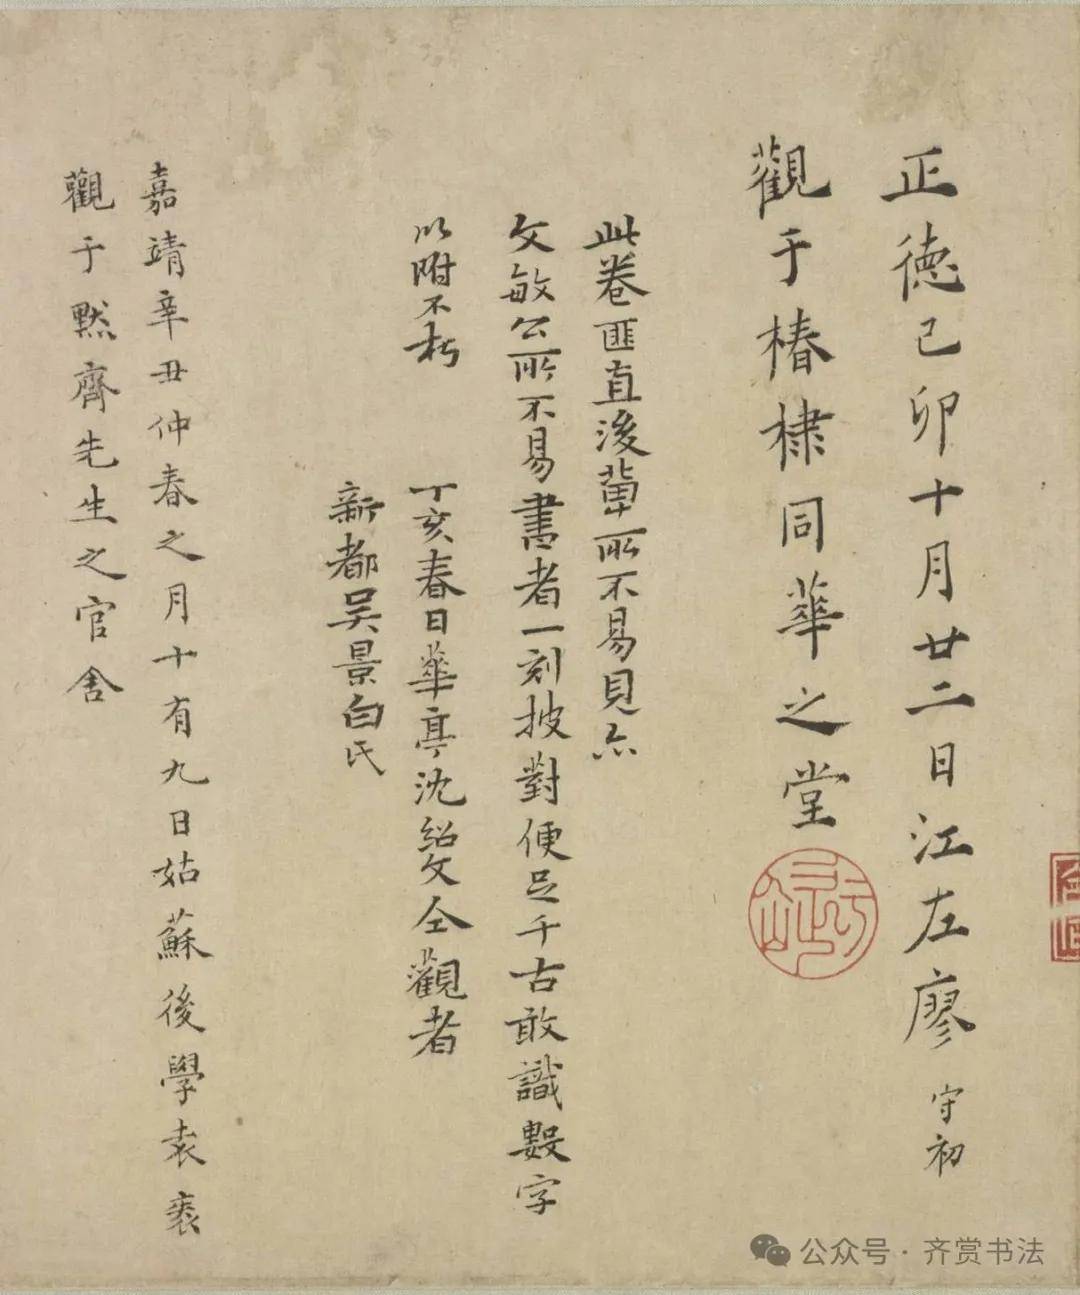 正德己卯十月廿二日江左廖守初
觀于椿棣同華之堂
此卷匪直後輩所不易見亦
文敏公所不易書者一刻披對便足千古敢識數字
以附不朽
丁亥春日華亭沈紹文仝觀者
新都吳景白氏
嘉靖辛丑仲春之月十有九日姑蘇後學袁袠
觀于默齊先生之官舍
公众号·齐赏书法